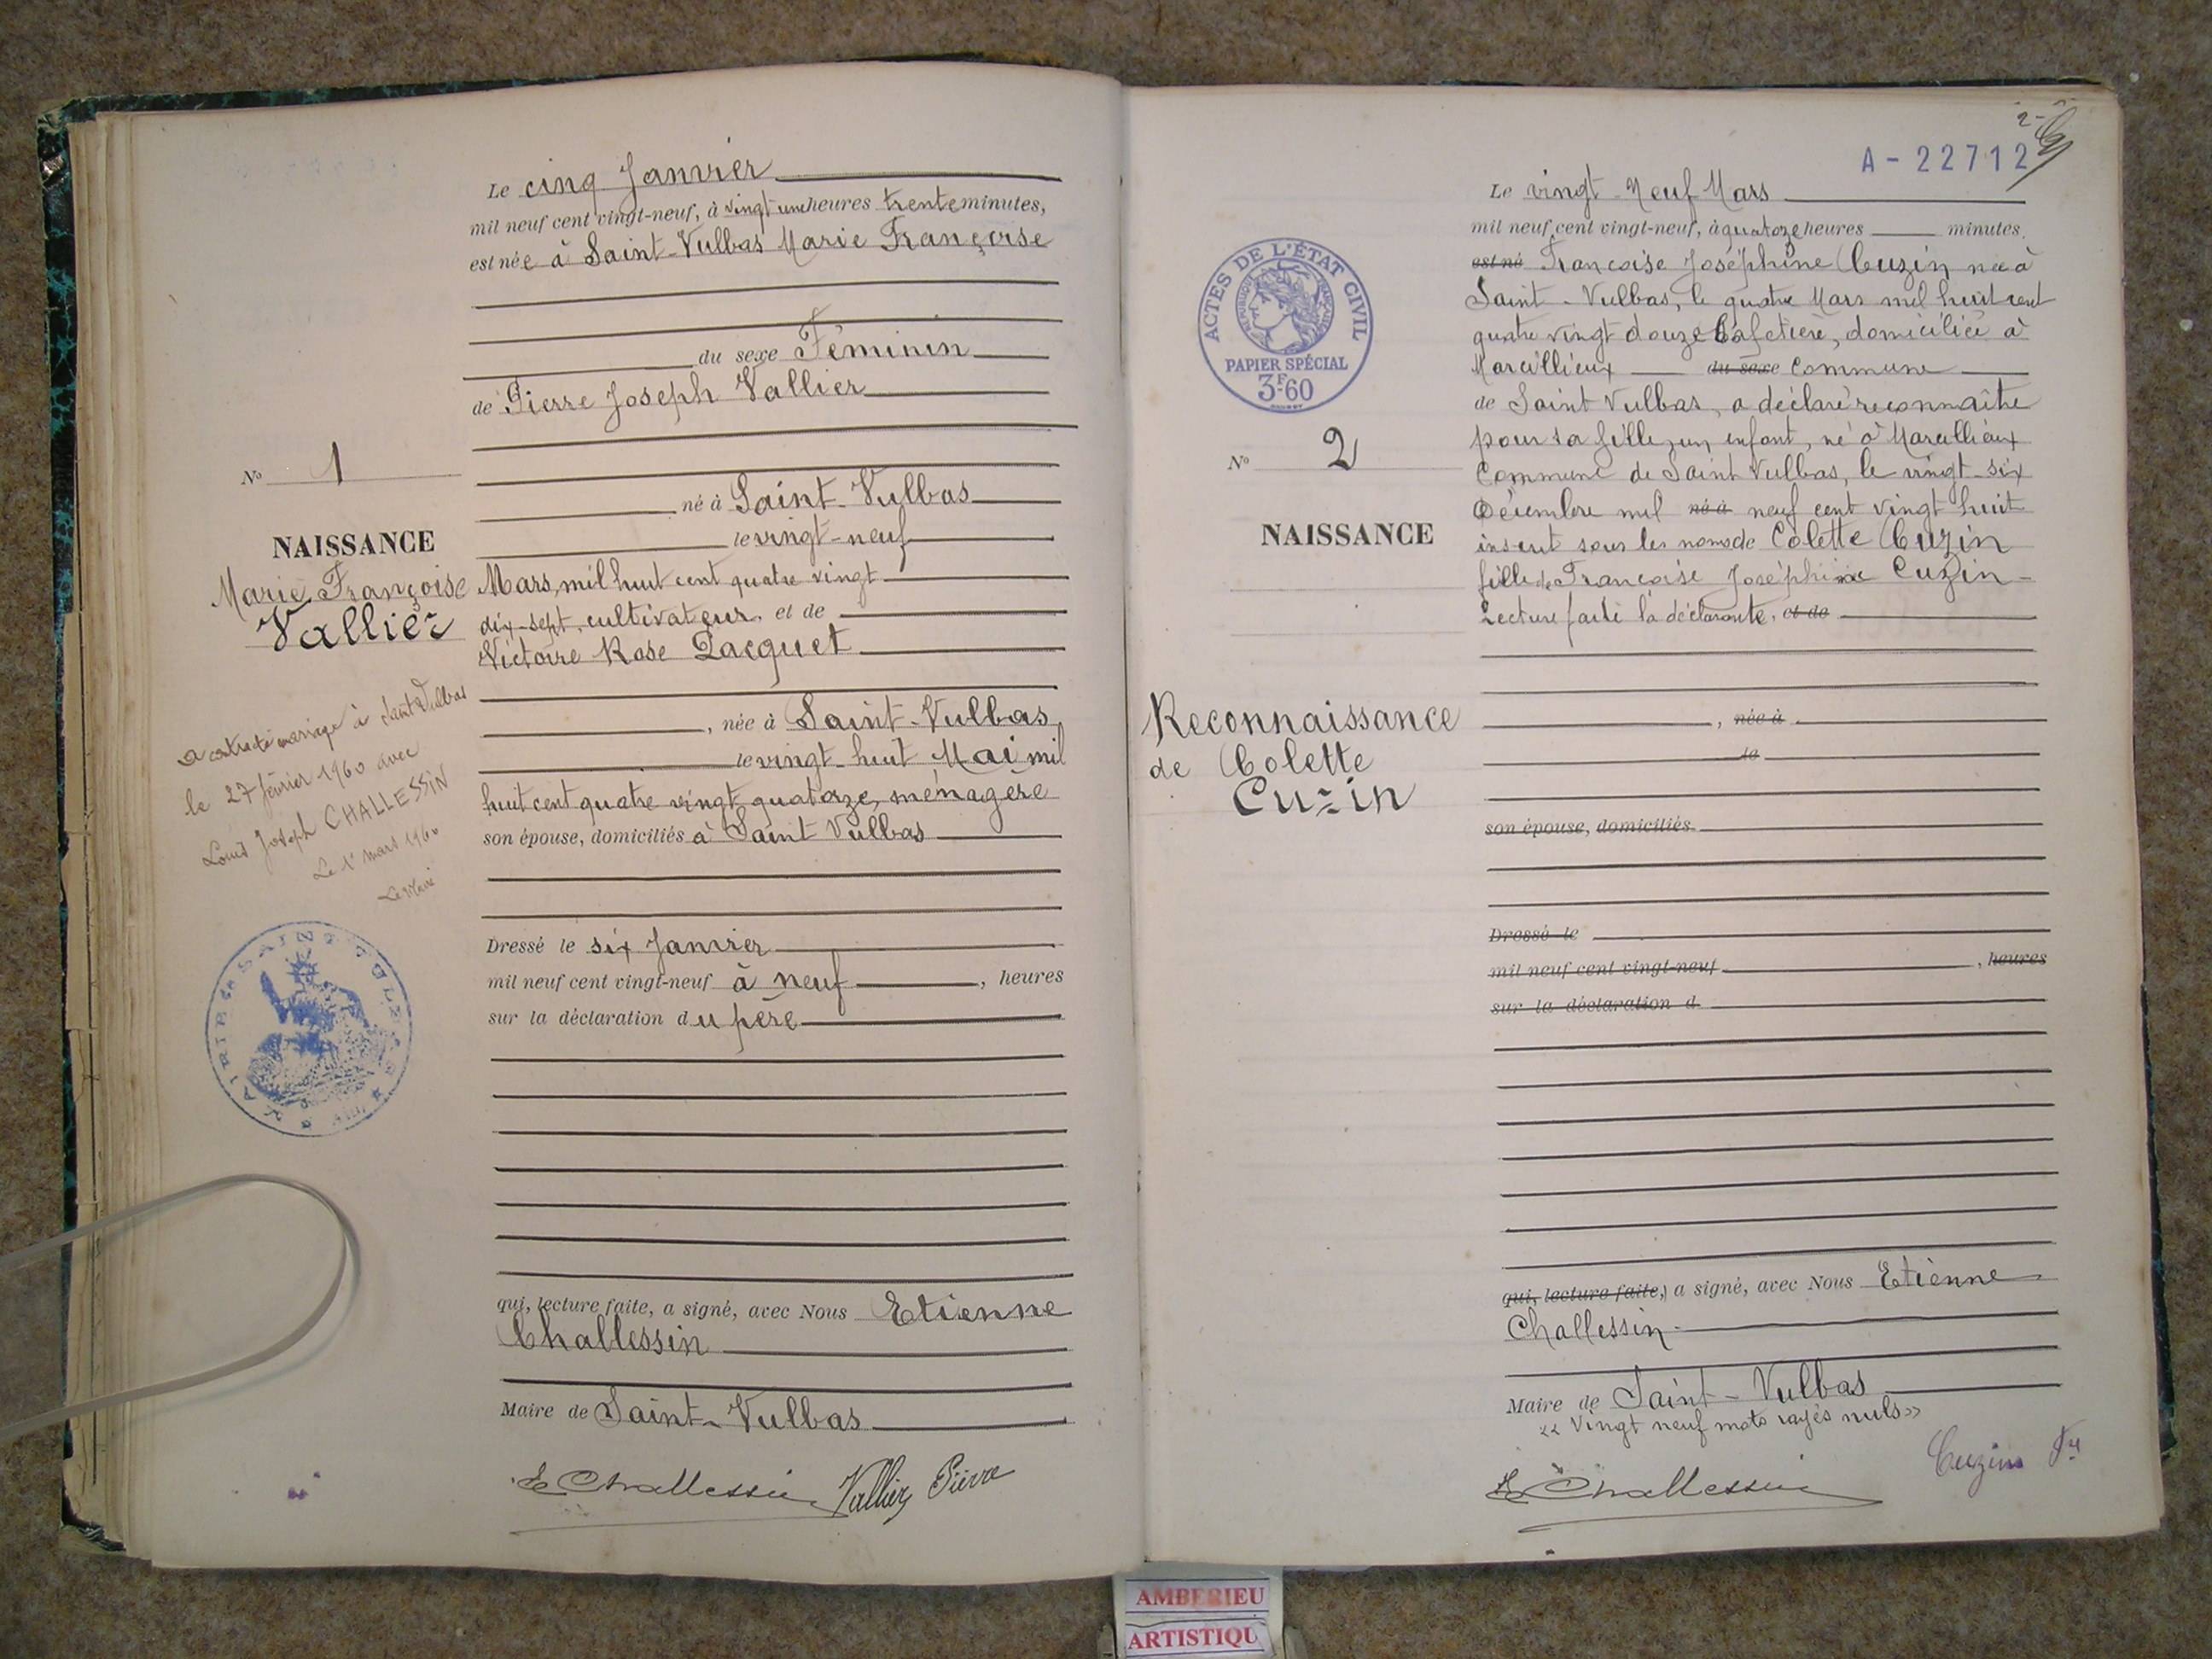 Le cinq Janvier
mil neuf cent vingt-neuf, à vingt-une heures trente minutes,
est née à Saint-Vulbas Marie Françoise
du sexe Féminin
de Pierre Joseph Vallier
né à Saint-Vulbas
le vingt-neuf
Mars, mil huit cent quatre vingt
dix-sept, cultivateur, et de
Victoire Rose Pacquet
, née à Saint-Vulbas,
le vingt-huit Mai mil
huit cent quatre vingt quatorze, ménagère
son épouse, domiciliés à Saint Vulbas
Dressé le six Janvier
mil neuf cent vingt-neuf à neuf, heures
sur la déclaration du père
qui, lecture faite, a signé, avec Nous Etienne
Challessin
Maire de Saint-Vulbas
E Challessin Vallier Pierre
No 1
NAISSANCE
Marie Françoise
Vallier
a contracté mariage à Saint Vulbas
le 27 février 1960 avec
Louis Joseph CHALLESSIN
Le 1er mars 1960
Le Maire
MAIRIE de SAINT VULBAS
2
A-22712
Le vingt-Neuf Mars
mil neuf cent vingt-neuf, à quatorze heures minutes,
est né Françoise Joséphine Cuzin née à
Saint-Vulbas, le quatre Mars mil huit cent
quatre vingt douze Cafetière, domiciliée à
Marcillieux du sexe Commune
de Saint Vulbas, a déclaré reconnaître
pour sa fille, un enfant, né à Marcillieux
Commune de Saint Vulbas, le vingt-six
Décembre mil né à neuf cent vingt huit
inscrit sous les noms de Colette Cuzin
fille de Françoise Joséphine Cuzin
Lecture faite la déclarante, et de
, née à
le
son épouse, domiciliés
Dressé le
mil neuf cent vingt-neuf, heures
sur la déclaration d
qui, lecture faite, a signé, avec Nous Etienne
Challessin
Maire de Saint-Vulbas
« Vingt neuf mots rayés nuls »
E Challessin Cuzin
ACTES DE L'ÉTAT CIVIL
RÉPUBLIQUE FRANÇAISE
PAPIER SPÉCIAL
3F60
No 2
NAISSANCE
Reconnaissance
de Colette
Cuzin
AMBERIEU
ARTISTIQU